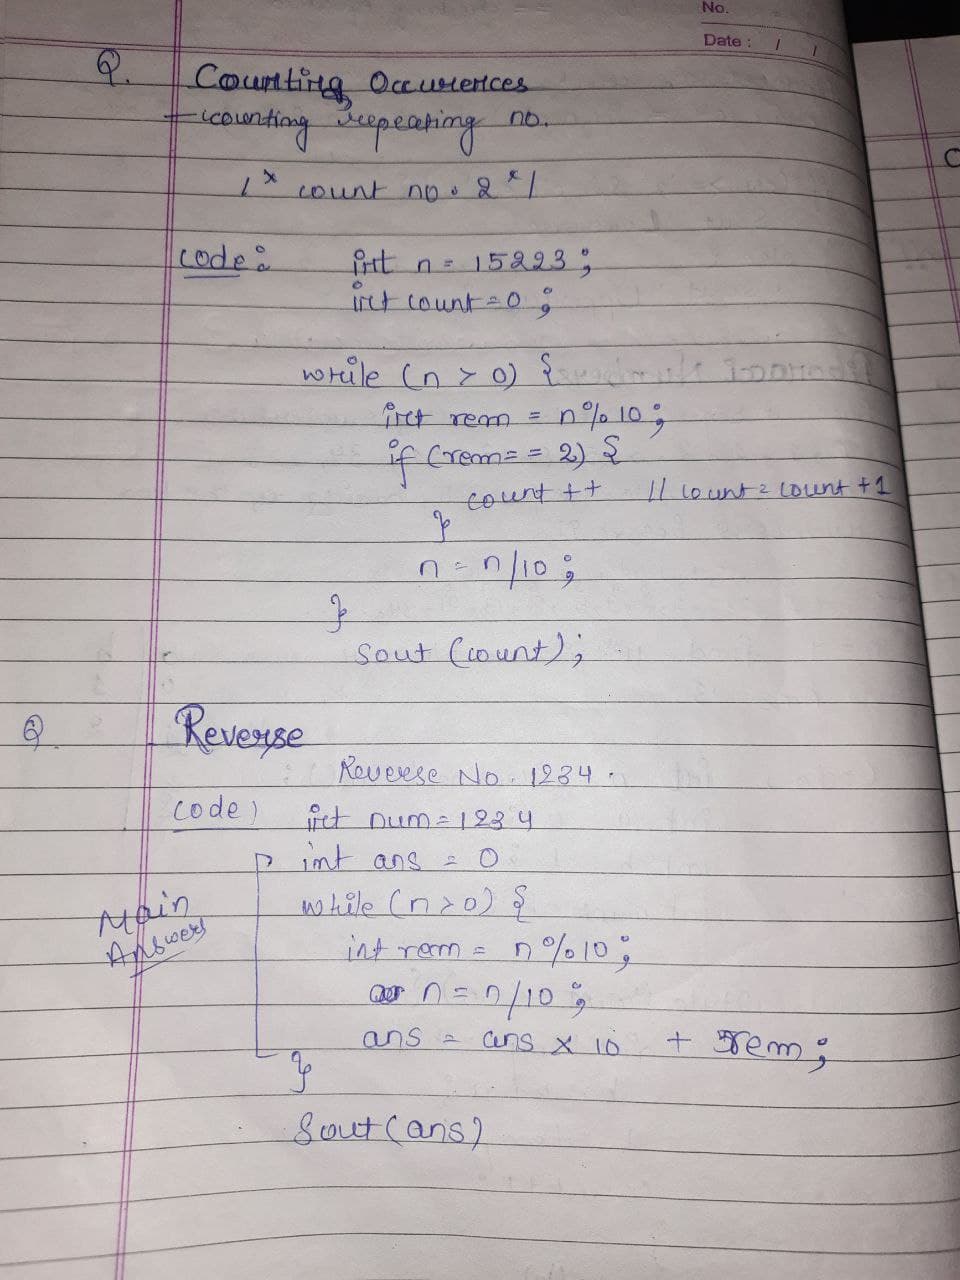 No.
Date : / /
Q. Counting Occurences
counting repeating no.
/* count no. 2 */
code: int n = 15223;
int count = 0;
while (n > 0) {
int rem = n % 10;
if (rem = = 2) {
count ++ // count = count + 1
}
n = n/10;
}
Sout (count);
Q. Reverse
Reverse No. 1234.
code) int num = 1234
int ans = 0
while (n > 0) {
Main
Answers
int rem = n % 10;
n = n/10;
ans = ans x 10 + rem;
}
Sout (ans)